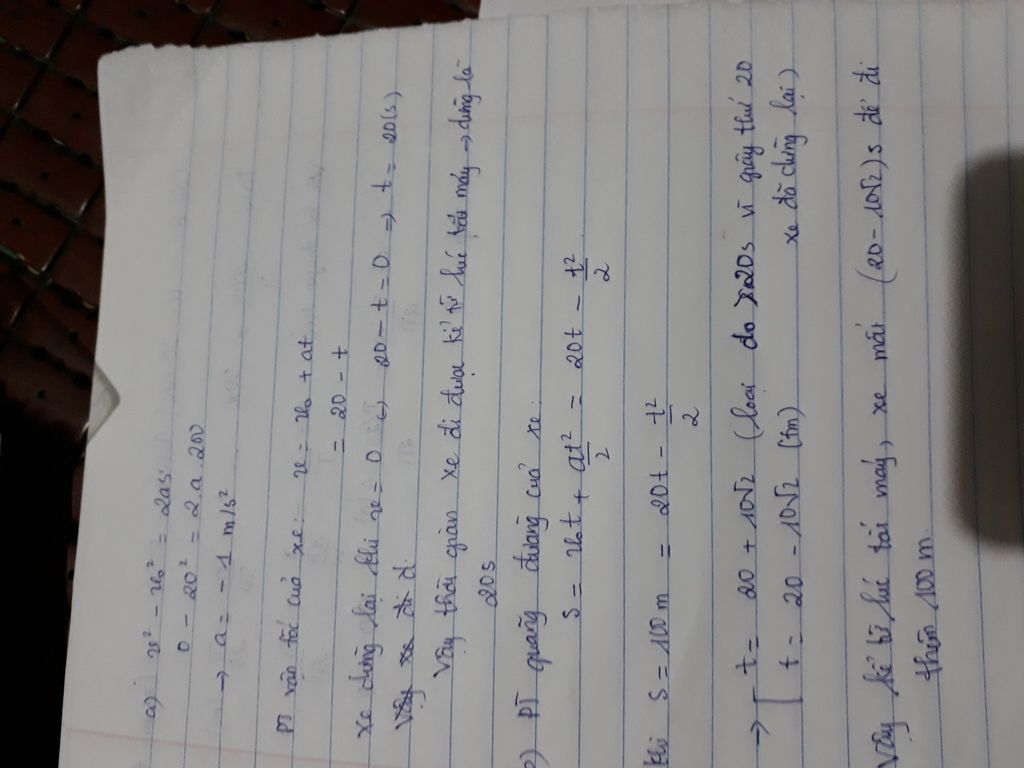 a) v² - v₀² = 2as
0 - 20² = 2.a.200
→ a = -1 m/s²
PT vận tốc của xe: v = v₀ + at
= 20 - t
Xe dừng lại khi v = 0 ⇔ 20 - t = 0 ⇒ t = 20(s)
Vậy thời gian xe đi được kể từ lúc tắt máy → dừng là
20s
PT quãng đường của xe:
S = v₀t + at²/2 = 20t - t²/2
Khi S = 100m = 20t - t²/2
→ [ t = 20 + 10√2 (loại do >20s vì giây thứ 20
xe đã dừng lại)
t = 20 - 10√2 (tm)
Vậy kể từ lúc tắt máy, xe mất (20 - 10√2)s để đi
thêm 100m.